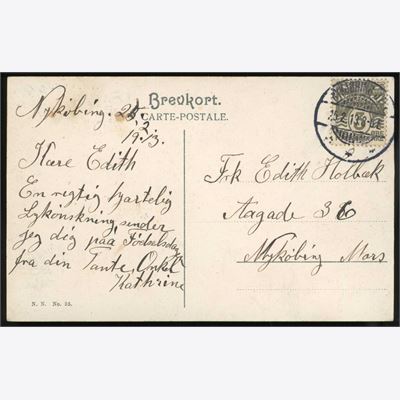 Brevkort.
CARTE-POSTALE.
Nykøbing. 25/2
1913.
Kære Edith
En rigtig hjertelig
Lykønskning sender
jeg dig paa Fødselsdag
fra din Tante, Onkel
Kathrine
N. N. No. 25.
Frk Edith Holbæk
Aagade 36
Nykøbing Mors